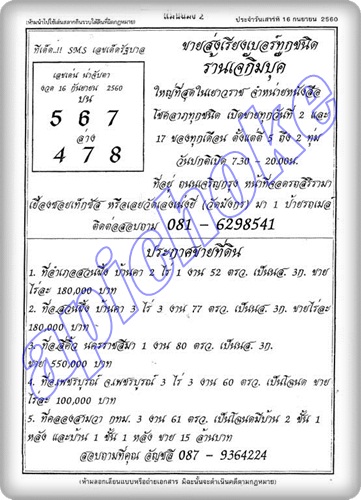 (ห้ามนำไปใช้เล่นสลากกินรวบได้ผิดกฎหมาย)
แม่นยิ่ง 2
ประจำวันเสาร์ที่ 16 กันยายน 2560
ทีเด็ด..!! SMS เลขเด็ดรัฐบาล
เลขเด่น น่าจับตา
งวด 16 กันยายน 2560
บน
5 6 7
ล่าง
4 7 8
ขายส่งเรียงเบอร์ทุกชนิด
ร้านเจ๊กิมบุ๊ค
ใหญ่ที่สุดในเยาวราช จำหน่ายหนังสือ
โชคลาภทุกชนิด เปิดขายทุกวันที่ 2 และ
17 ของทุกเดือน ตั้งแต่ตี 5 ถึง 2 ทุ่ม
วันปกติเปิด 7.30 - 20.00น.
ที่อยู่ ถนนเจริญกรุง หน้าที่จอดรถสิริรามา
เยื้องซอยเท็กซัส หรือเลยวัดเล่งเน่ยยี่ (วัดมังกร) มา 1 ป้ายรถเมล์
ติดต่อสอบถาม 081 - 6298541
ประกาศขายที่ดิน
1. ที่อำเภอสวนผึ้ง บ้านคา 2 ไร่ 1 งาน 52 ตรว. เป็นนส. 3ก. ขาย
ไร่ละ 180,000 บาท
2. ที่อ.สวนผึ้ง บ้านคา 3 ไร่ 3 งาน 77 ตรว. เป็นนส. 3ก. ขายไร่ละ
180,000 บาท
3. ที่อ.สีคิ้ว นครราชสีมา 1 งาน 80 ตรว. เป็นนส. 3ก.
ขาย 550,000 บาท
4. ที่อ.เพชรบูรณ์ จ.เพชรบูรณ์ 3 ไร่ 3 งาน 60 ตรว. เป็นโฉนด ขาย
ไร่ละ 100,000 บาท
5. ที่คลองสามวา กทม. 3 งาน 61 ตรว. เป็นโฉนดมีบ้าน 2 ชั้น 1
หลัง และบ้าน 1 ชั้น 1 หลัง ขาย 15 ล้านบาท
สอบถามที่คุณ อัญชลี 087 - 9364224
(ห้ามลอกเลียนแบบหรือถ่ายเอกสาร มิฉะนั้นจะดำเนินคดีตามกฎหมาย)
apichoke